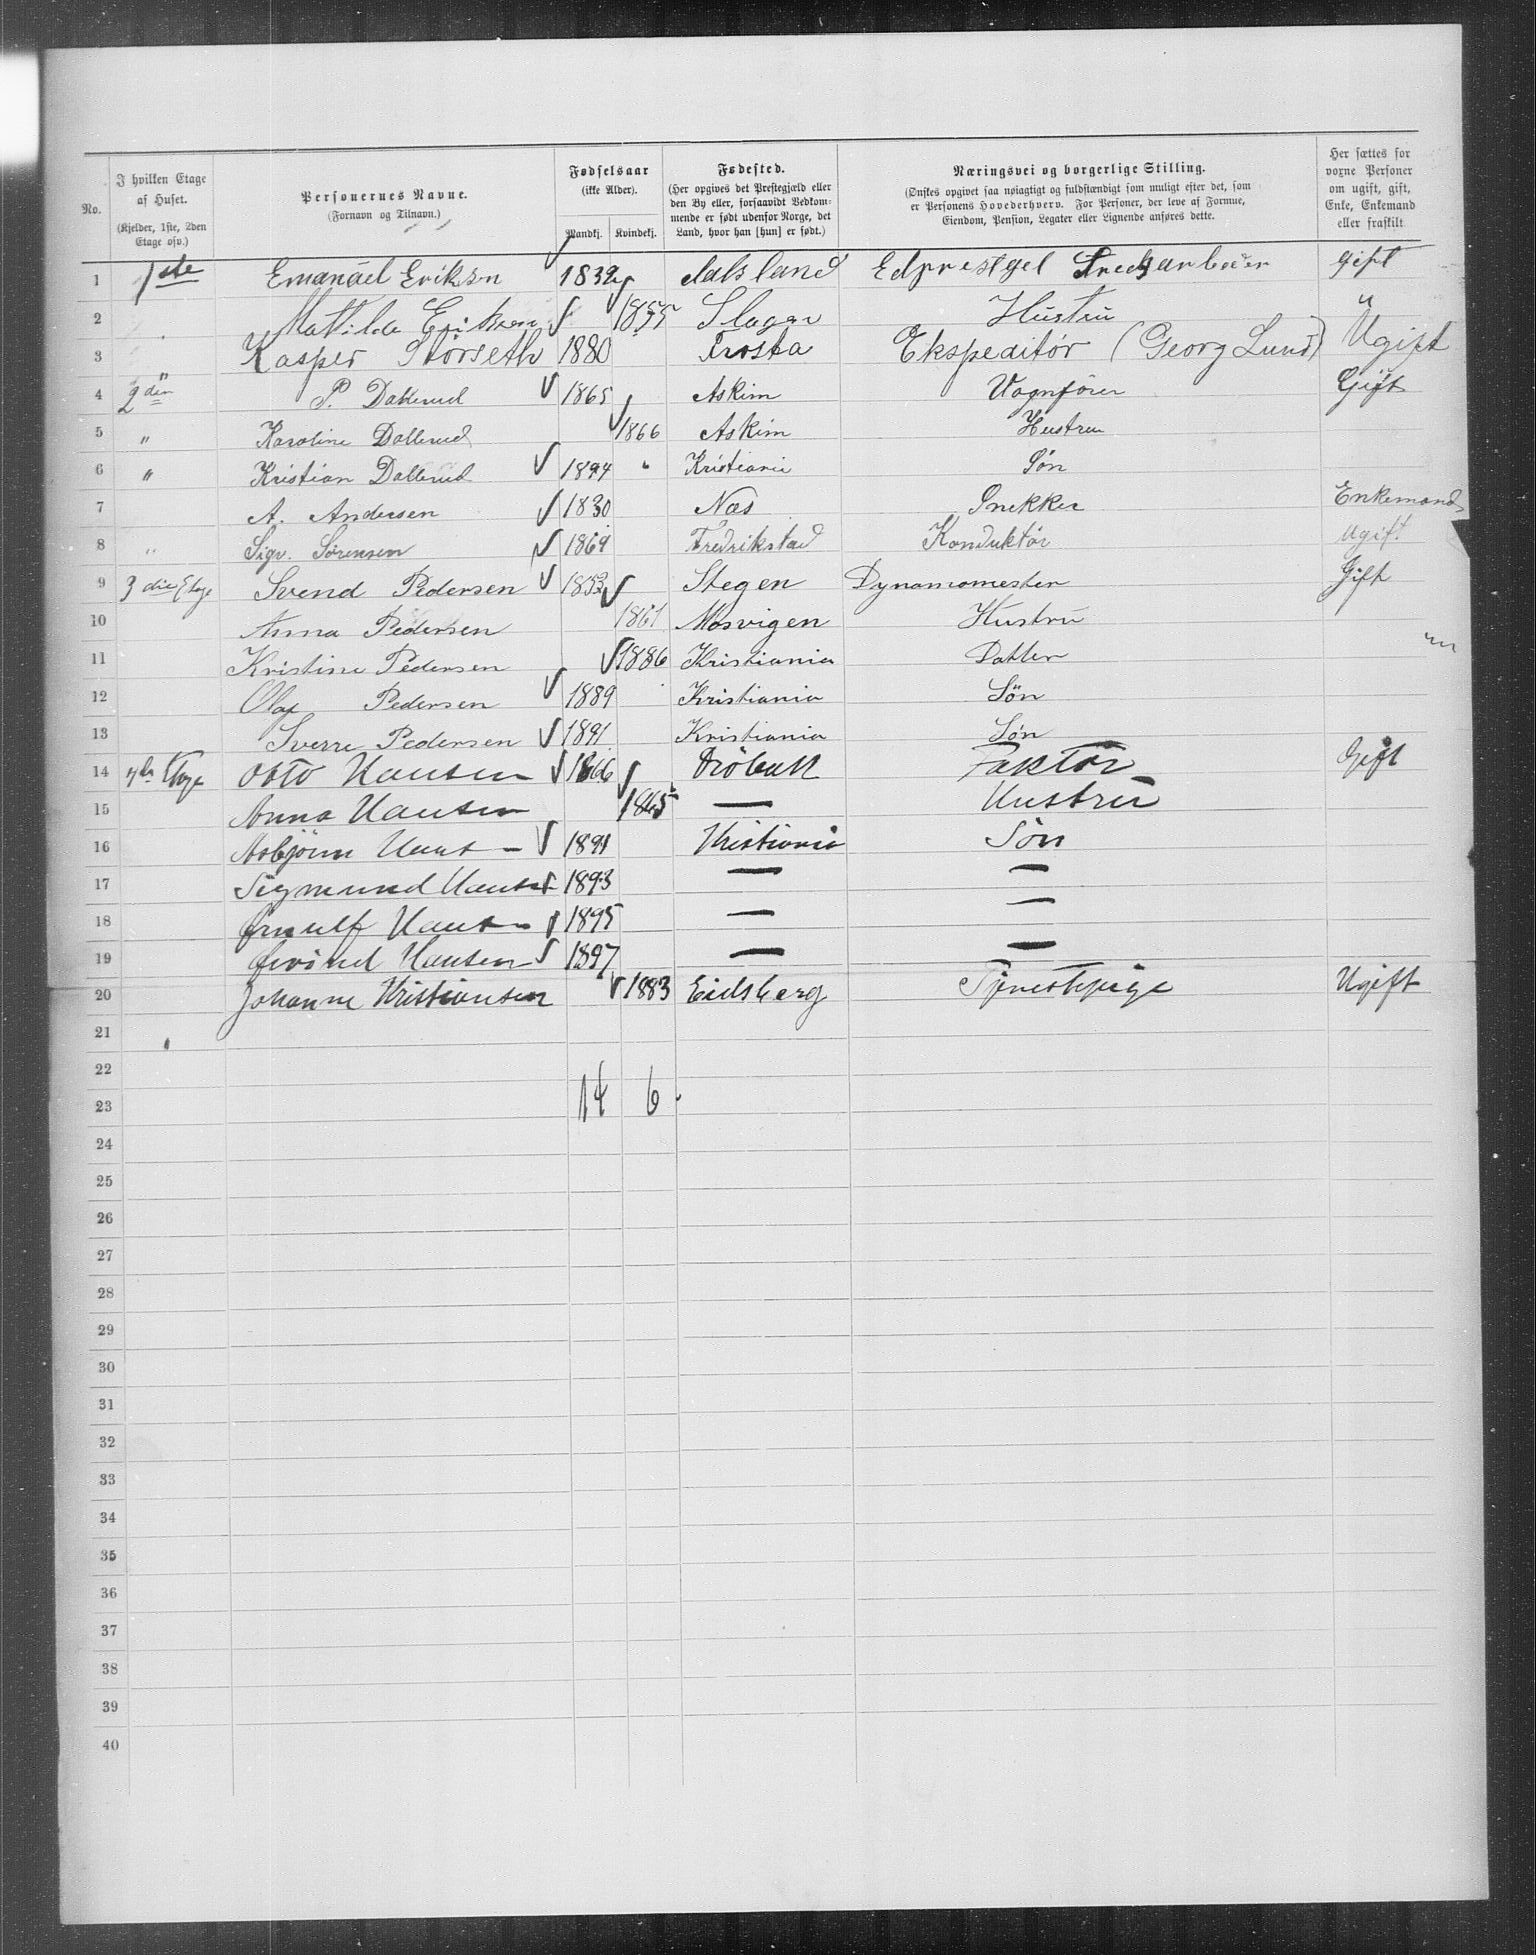 No. I hvilken Etage af Huset. (Kjelder, 1ste, 2den Etage osv.) Personernes Navne. (Fornavn og Tilnavn.) Fødselsaar (ikke Alder). Mandkj. Kvindekj. Fødested. (Her opgives det Prestegjæld eller den By eller, forsaavidt Vedkommende er født udenfor Norge, det Land, hvor han [hun] er født.) Næringsvei og borgerlige Stilling. (Ønskes opgivet saa nøiagtigt og fuldstændigt som muligt efter det, som er Personens Hovederhverv. For Personer, der leve af Formue, Eiendom, Pension, Legater eller Lignende anføres dette. Her sættes for voxne Personer om ugift, gift, Enke, Enkemand eller fraskilt
1 1ste Emanuel Eriksn 1832 dalsland gift
2 Matilde Eriksen 1855 Slagen Hustru "
3 " Kasper Störseth 1880 Frosta Ekspeditör (Georg Lund) Ugift
4 2den P. Dalleud 1865 Askim Vognfører Gift
5 " Karoline Dallerud 1866 Askim Hustru
6 " Kristian Dallerud 1894 Kristiania Søn
7 A. Andersen 1830 Næs Snekker Enkemand
8 " Sigv. Sørensen 1869 Fredrikstad Konduktør Ugift
9 3die Etage Svend Pedersen 1853 Stegen Dynamomester Gift
10 Anna Pedersen 1861 Mosvigen Hustru
11 Kristine Pedersen 1886 Kristiania Datter
12 Olaf Pedersen 1889 Kristiania Sön
13 Sverre Pedersen 1891 Kristiania Sön
14 4de Etage Otto Hansen 1866 Dröbak Faktör Gift
15 Anna Hansen 1865 — Hustru
16 Asbjörn Hans- 1891 Kristiania Sön
17 Sigmund Hansen 1893 — —
18 Ørnulf Hans- 1895 — —
19 Øivind Hansen 1897 — —
20 Johanne Kristiansen 1883 Eidsberg Tjenestepige Ugift
21
22
14 6
23
24
25
26
27
28
29
30
31
32
33
34
35
36
37
38
39
40